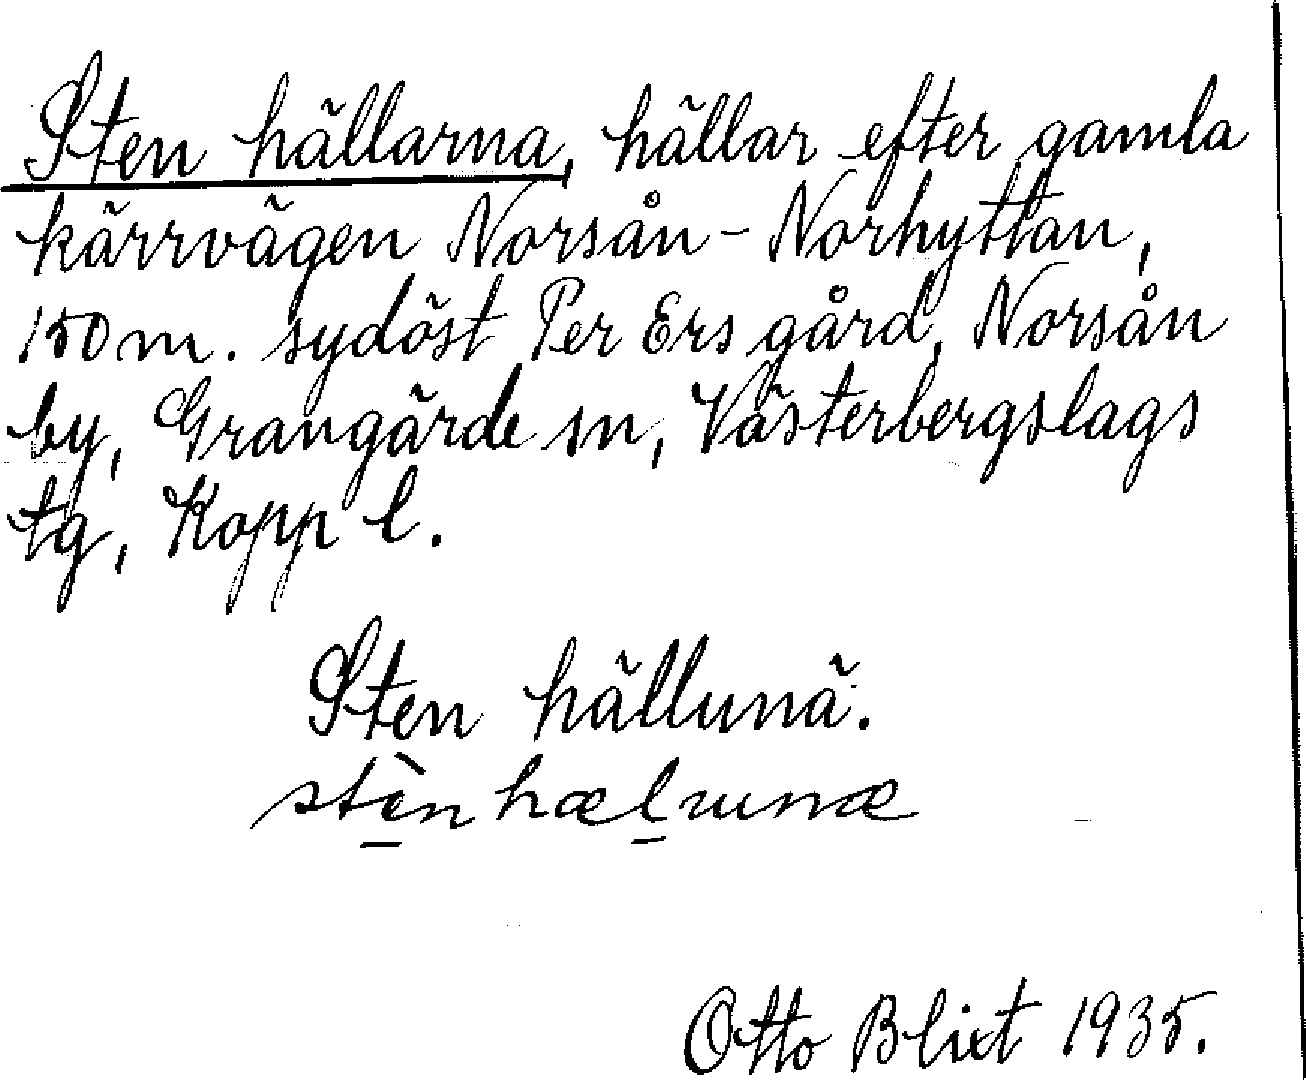 Sten hällarna, hällar efter gamla
kärrvägen Norsån - Norhyttan,
150 m. sydöst Per Ers gård, Norsån
by, Grangärde sn, Västerbergslags
tg, Kopp l.
Sten hällunä.
stèn hælunæ
Otto Blixt 1935.